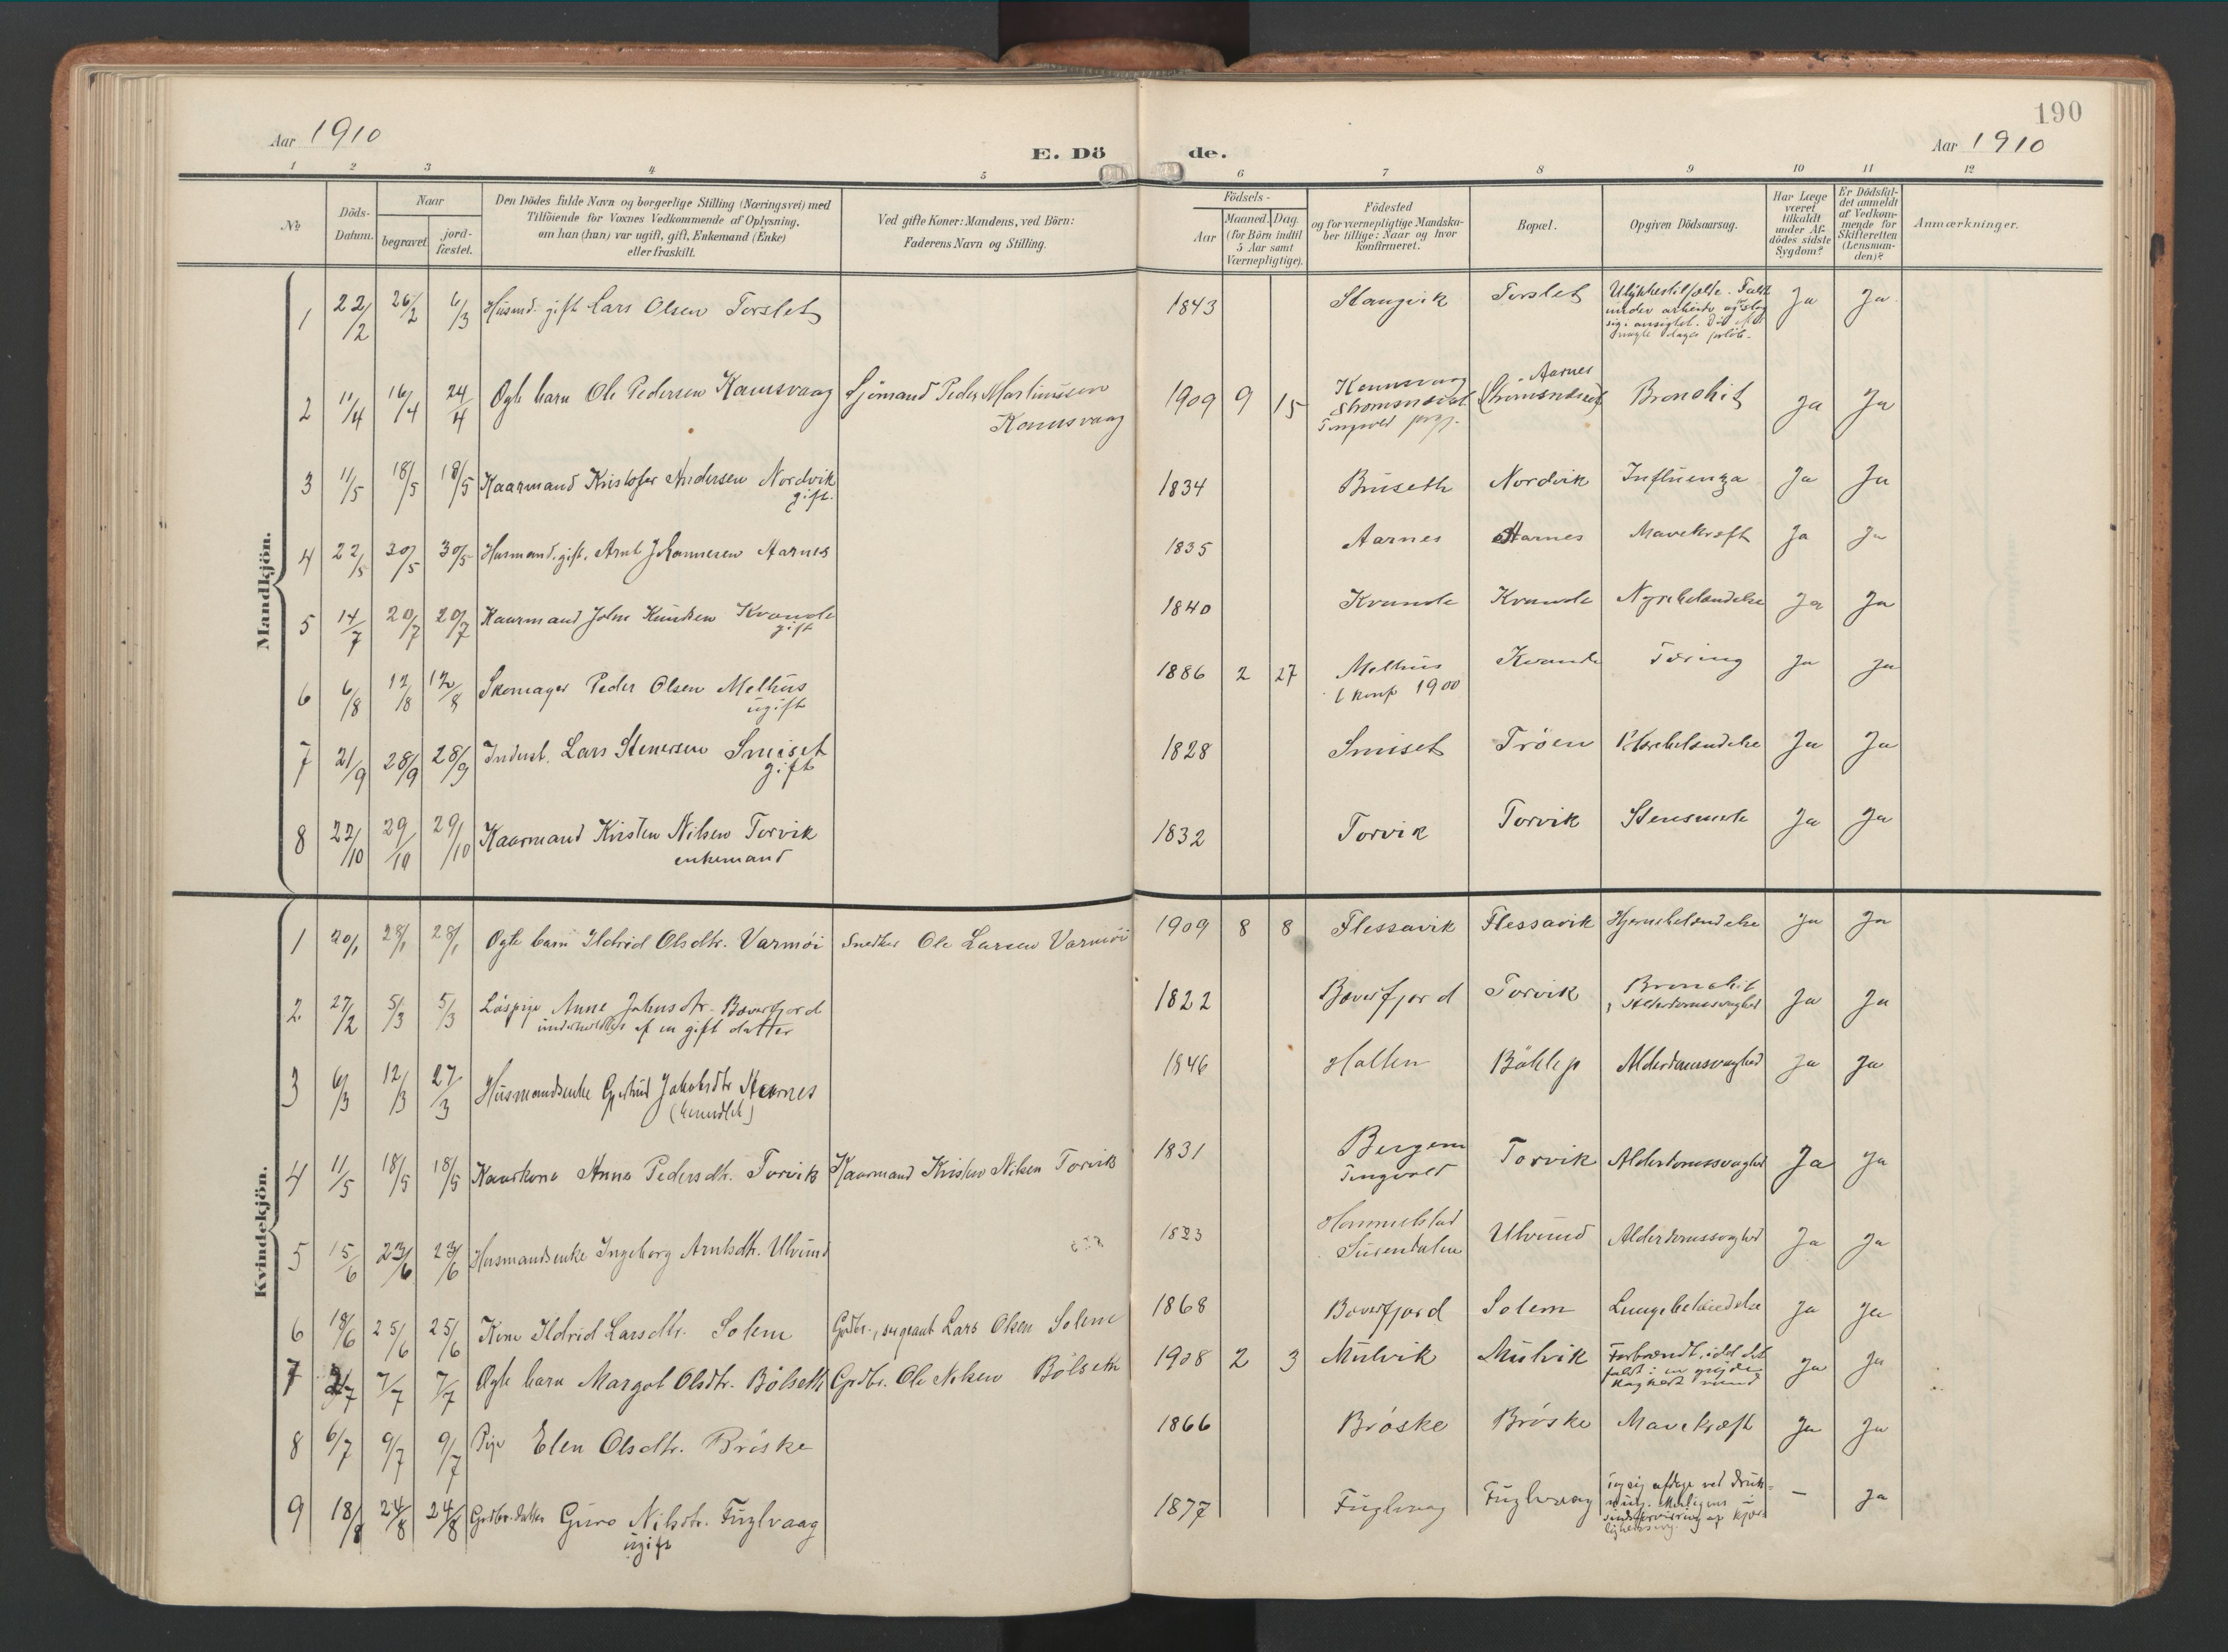 190
Aar 1910
E. Dö
de.
Aar 1910
1 2 3 4 5 6 7 8 9 10 11 12
No
Döds-Datum.
Naar
begravet
jord-fæstet.
Den Dödes fulde Navn og borgerlige Stilling (Næringsvei) med
Tilföiende for Voxnes Vedkommende af Oplysning,
om han (hun) var ugift, gift, Enkemand (Enke)
eller fraskilt.
Ved gifte Koner: Mandens, ved Börn:
Faderens Navn og Stilling.
Födsels-
Aar
Maaned. Dag.
(for Börn indtil
5 Aar samt
Værnepligtige).
Födested
og for værnepligtige Mandska-
ber tillige: Naar og hvor
konfirmeret.
Bopæl.
Opgiven Dödsaarsag.
Har Læge
været
tilkaldt
under Af-
dödes sidste
Sygdom?
Er Dödsfal-
det anmeldt
af Vedkom-
mende for
Skifteretten
(Lensman-
den)?
Anmærkninger.
Mandkjön.
1 22/2 26/2 6/3 Husmd. gift Lars Olsen Torslet 1843 Stangvik Torslet Ulykkestilfælde. Faldt Ja Ja
under arbeide og slog
sig i ansigtet.
nogle dages
2 11/4 16/4 24/4 Ægte barn Ole Pedersen Kamsvaag Sjømand Peder Martinussen
Kamsvaag 1909 9 15 Kamsvaag
Strømsneset
Tingvold prgj.
Aarnes
Bronchit Ja Ja
3 11/5 18/5 18/5 Kaarmand Kristofer Andersen Nordvik
gift. 1834 Bruseth Nordvik Influenza Ja Ja
4 22/5 30/5 30/5 Husmand, gift, Arnt Johannesen Aarnes 1835 Aarnes Aarnes Mavekræft Ja Ja
5 14/7 20/7 20/7 Kaarmand John Knudsen Kvande
gift 1840 Kvande Kvande Nyrebetændelse Ja Ja
6 6/8 12/8 12/8 Skomager Peder Olsen Melhus
ugift 1886 2 27 Melhus
konf 1900 Kvande Tæring Ja Ja
7 21/9 28/9 28/9 Inderst. Lars Stenersen Smiset
gift 1828 Smiset Trøen Ja Ja
8 22/10 29/10 29/10 Kaarmand Kristen Nilsen Torvik
enkemand 1832 Torvik Torvik Stensmerte Ja Ja
Kvindekjön.
1 20/1 28/1 28/1 Ægte barn Ildrid Olsdtr. Varmøi Snedker Ole Larsen Varmøi 1909 8 8 Flessavik Flessavik Hjernebetændelse Ja Ja
2 27/2 5/3 5/3 Løspige Anne Johnsdtr. Bøverfjord
underholdtes af en gift datter 1822 Bøverfjord Torvik Bronchit
Alderdomssvaghed Ja Ja
3 6/3 12/3 27/3 Husmandsenke Gjertrud Jakobsdtr Aarnes
1846 Halten Alderdomssvaghed Ja Ja
4 11/5 18/5 18/5 Kaarkone Anne Pedersdtr. Torvik Kaarmand Kristen Nilsen Torvik 1831 Bergem
Tingvold Torvik Alderdomssvaghed Ja Ja
5 15/6 23/6 23/6 Husmandsenke Ingeborg Arntsdtr. Ulvund 1823 Hommelstad
Surendalen Ulvund Alderdomssvaghed Ja Ja
6 18/6 25/6 25/6 Kone Ildrid Larsdtr. Solem Grdbr., sergeant Lars Olsen Solem 1868 Bøverfjord Solem Lungebetændelse Ja Ja
7 2/7 7/7 7/7 Ægte barn Margot Olsdtr. Bølseth Grdbr. Ole Nilsen Bølseth 1908 2 3 Mulvik Mulvik Forbrændt, idet det Ja Ja
faldt i en gryde
koghedt vand
8 6/7 9/7 9/7 Pige Elen Olsdtr. Brøske 1866 Brøske Brøske Mavekræft Ja Ja
9 18/8 24/8 24/8 Grdbr.datter Guro Nilsdtr. Fuglvaag
ugift 1877 Fuglvaag Fuglvaag – Ja